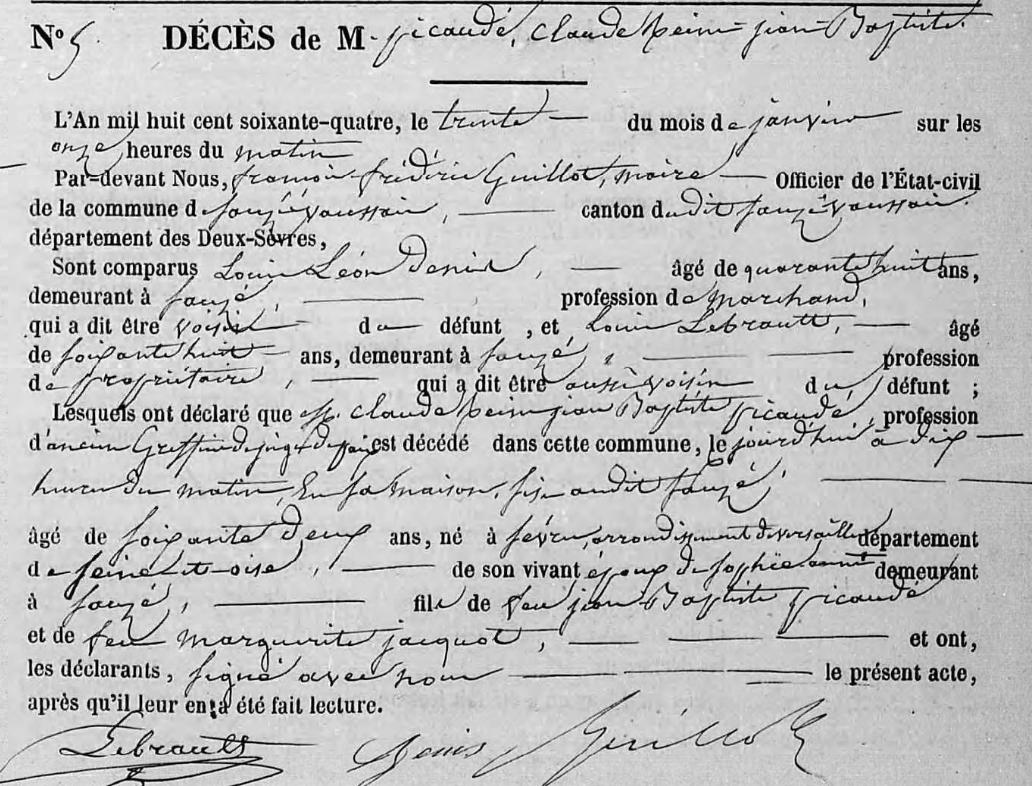 N° 5 DÉCÈS de M. picaudé, Claude Reim jean Baptiste.
L'An mil huit cent soixante-quatre, le trente — du mois de janvier sur les
onze heures du matin
Par-devant Nous, françois frédéric Guillot, maire — Officier de l'État-civil
de la commune de Sauzé vaussais, — canton dudit Sauzé vaussais.
département des Deux-Sèvres,
Sont comparus Louis Léon Denis, — âgé de quarante huit ans,
demeurant à Sauzé, — profession de marchand,
qui a dit être voisin — du défunt, et Louis Lebrault, — âgé
de soixante huit — ans, demeurant à Sauzé, — profession
de propriétaire, — qui a dit être aussi voisin du défunt ;
Lesquels ont déclaré que Claude Reim jean Baptiste picaudé, profession
d'ancien Greffier de est décédé dans cette commune, le jourd'hui à dix —
heures du matin, en sa maison, sise audit Sauzé, —
âgé de soixante deux ans, né à Sèvres, arrondissement de versailles département
de Seine-et-oise, — de son vivant époux de Sophie demeurant
à Sauzé, — fils de feu jean Baptiste picaudé
et de feu marguerite jacquot, — et ont,
les déclarants, signé avec nous — le présent acte,
après qu'il leur en a été fait lecture.
Lebrault Denis Guillot